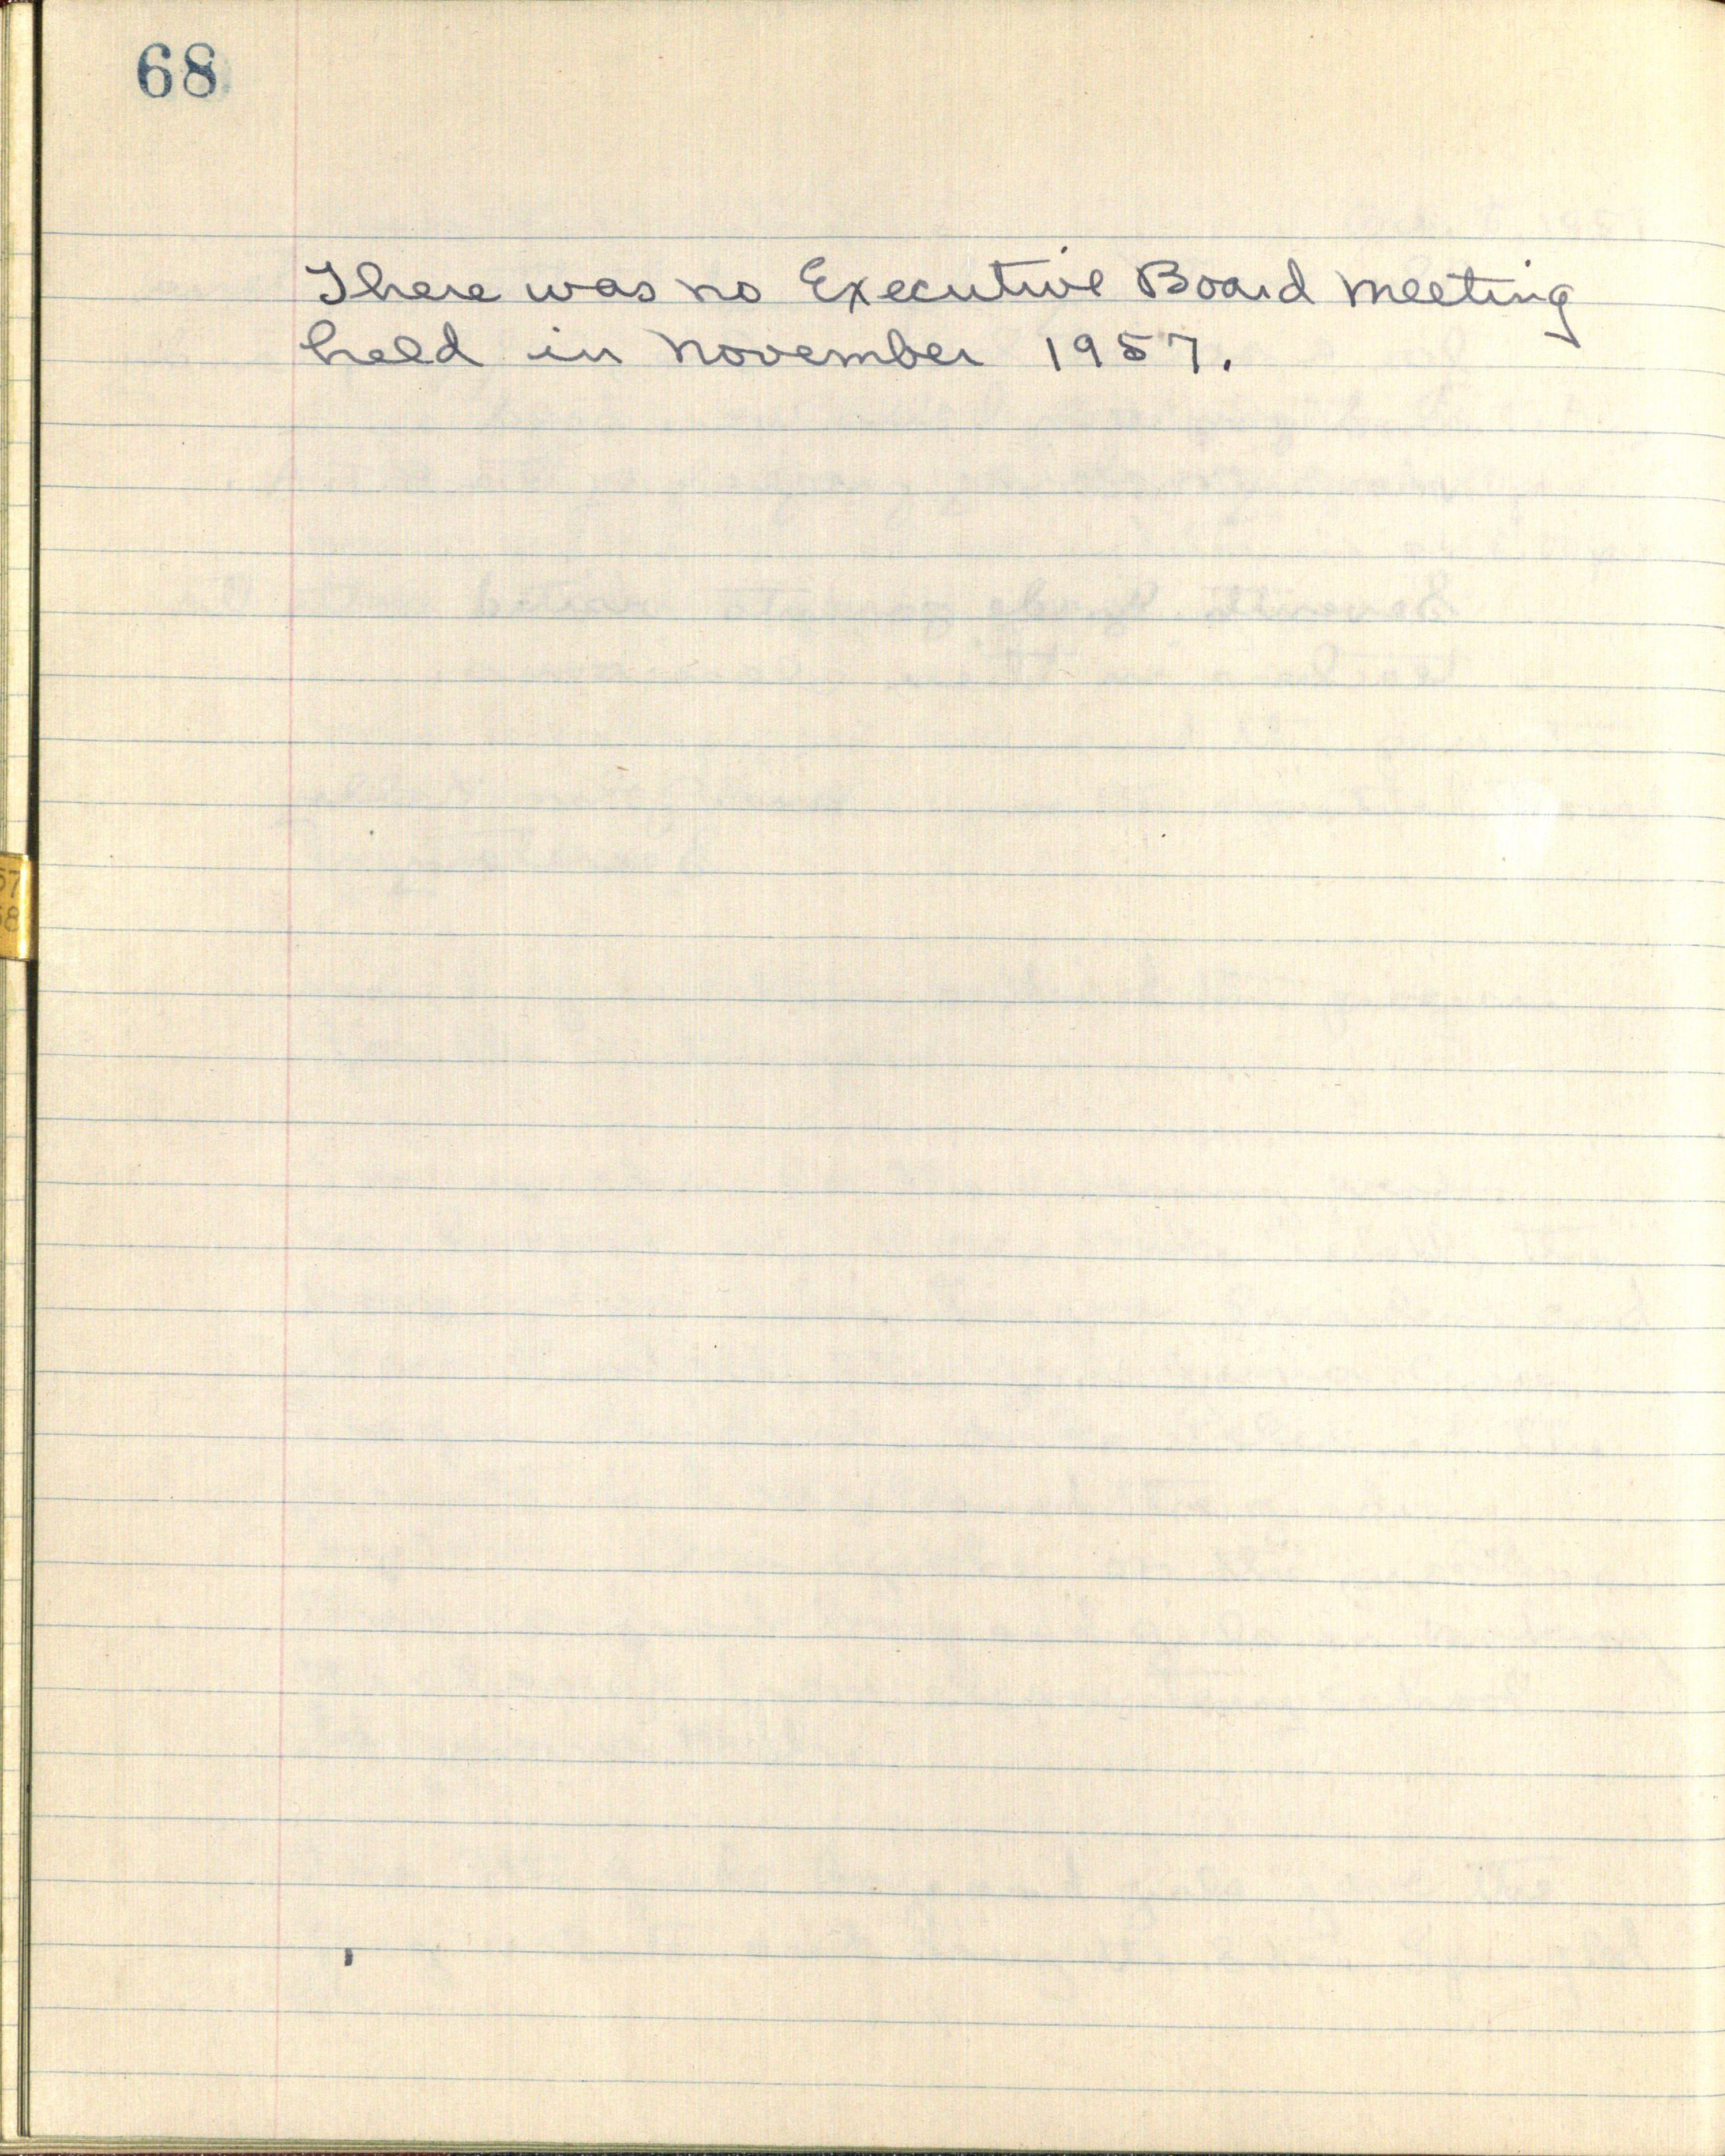 68
There was no Executive Board meeting
held in November 1957.
57
58